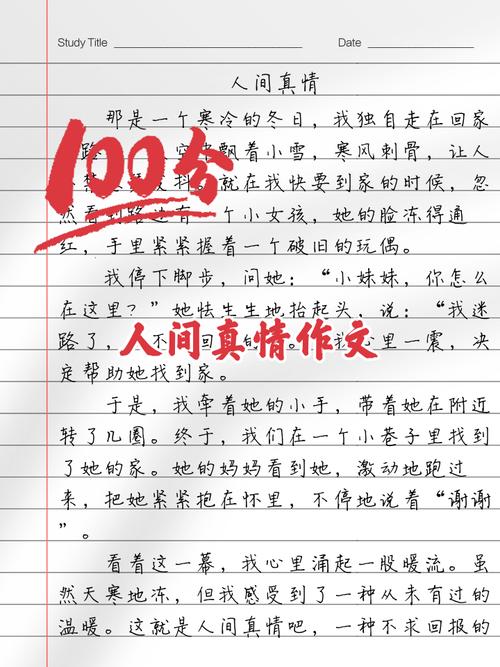 Study Title
Date
人间真情
那是一个寒冷的冬日，我独自走在回家
100分
路 飘着小雪，寒风刺骨，让人
抖。就在我快要到家的时候，忽
然看到路边有一个小女孩，她的脸冻得通
红，手里紧紧握着一个破旧的玩偶。
我停下脚步，问她：“小妹妹，你怎么
在这里？”她怯生生地抬起头，说：“我迷
路了，不 回 心里一震，决
人间真情作文
定帮助她找到家。
于是，我牵着她的小手，带着她在附近
转了几圈。终于，我们在一个小巷子里找到
了她的家。她的妈妈看到她，激动地跑过
来，把她紧紧抱在怀里，不停地说着“谢谢
”。
看着这一幕，我心里涌起一股暖流。虽
然天寒地冻，但我感受到了一种从未有过的
温暖。这就是人间真情吧，一种不求回报的